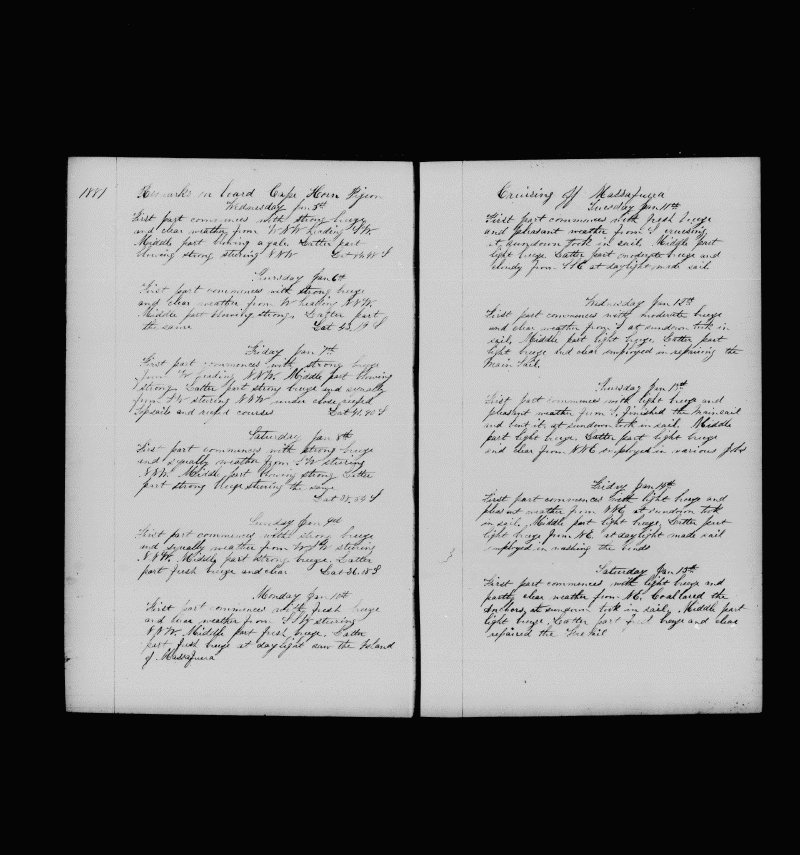 1881
Remarks on board Cape Horn Pigeon
Wednesday Jan 5th
First part commences with strong breeze
and clear weather from WNW heading SW.
Middle part blowing a gale Latter part
blowing strong steering NNW Lat S
Thursday Jan 6th
First part commences with strong breeze
and clear weather from W heading NNW.
Middle part blowing strong. Latter part
the same Lat S
Friday Jan 7th
First part commences with strong breeze
from W heading NNW. Middle part blowing
strong. Latter part strong breeze and squally
from SW steering NNW under close reefed
topsails and reefed courses Lat 41.40 S
Saturday Jan 8th
First part commences with strong breeze
and squally weather from SW steering
NNW. Middle part blowing strong Latter
part strong breeze steering the same
Lat 38.54 S
Sunday Jan 9th
First part commences with strong breeze
and squally weather from steering
NNW. Middle part strong breeze. Latter
part fresh breeze and clear Lat 36.18 S
Monday Jan 10th
First part commences with fresh breeze
and clear weather from SSW steering
NNW. Middle part fresh breeze. Latter
part fresh breeze at daylight saw the Island
of Massafuera
Cruising off Massafuera
Tuesday Jan 11th
First part commences with fresh breeze
and pleasant weather from S cruising
at sundown took in sail. Middle part
light breeze Latter part moderate breeze and
cloudy from SSE at daylight made sail
Wednesday Jan 12th
First part commences with moderate breeze
and clear weather from S at sundown took in
sail. Middle part light breeze. Latter part
light breeze and clear employed in repairing the
Main Sail.
Thursday Jan 13th
First part commences with light breeze and
pleasant weather from S. finished the mainsail
and bent it. at sundown took in sail. Middle
part light breeze. Latter part light breeze
and clear from NNE employed in various jobs
Friday Jan 14th
First part commences with light breeze and
pleasant weather from NNE at sundown took
in sail. Middle part light breeze. Latter part
light breeze from NE. at daylight made sail
employed in washing the bends
Saturday Jan 15th
First part commences with light breeze and
partly clear weather from NE. Coaltarred the
anchors, at sundown took in sail. Middle part
light breeze. Latter part fresh breeze and clear
repaired the Foresail